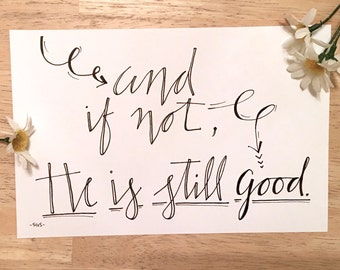 and
if not,
He is still good.